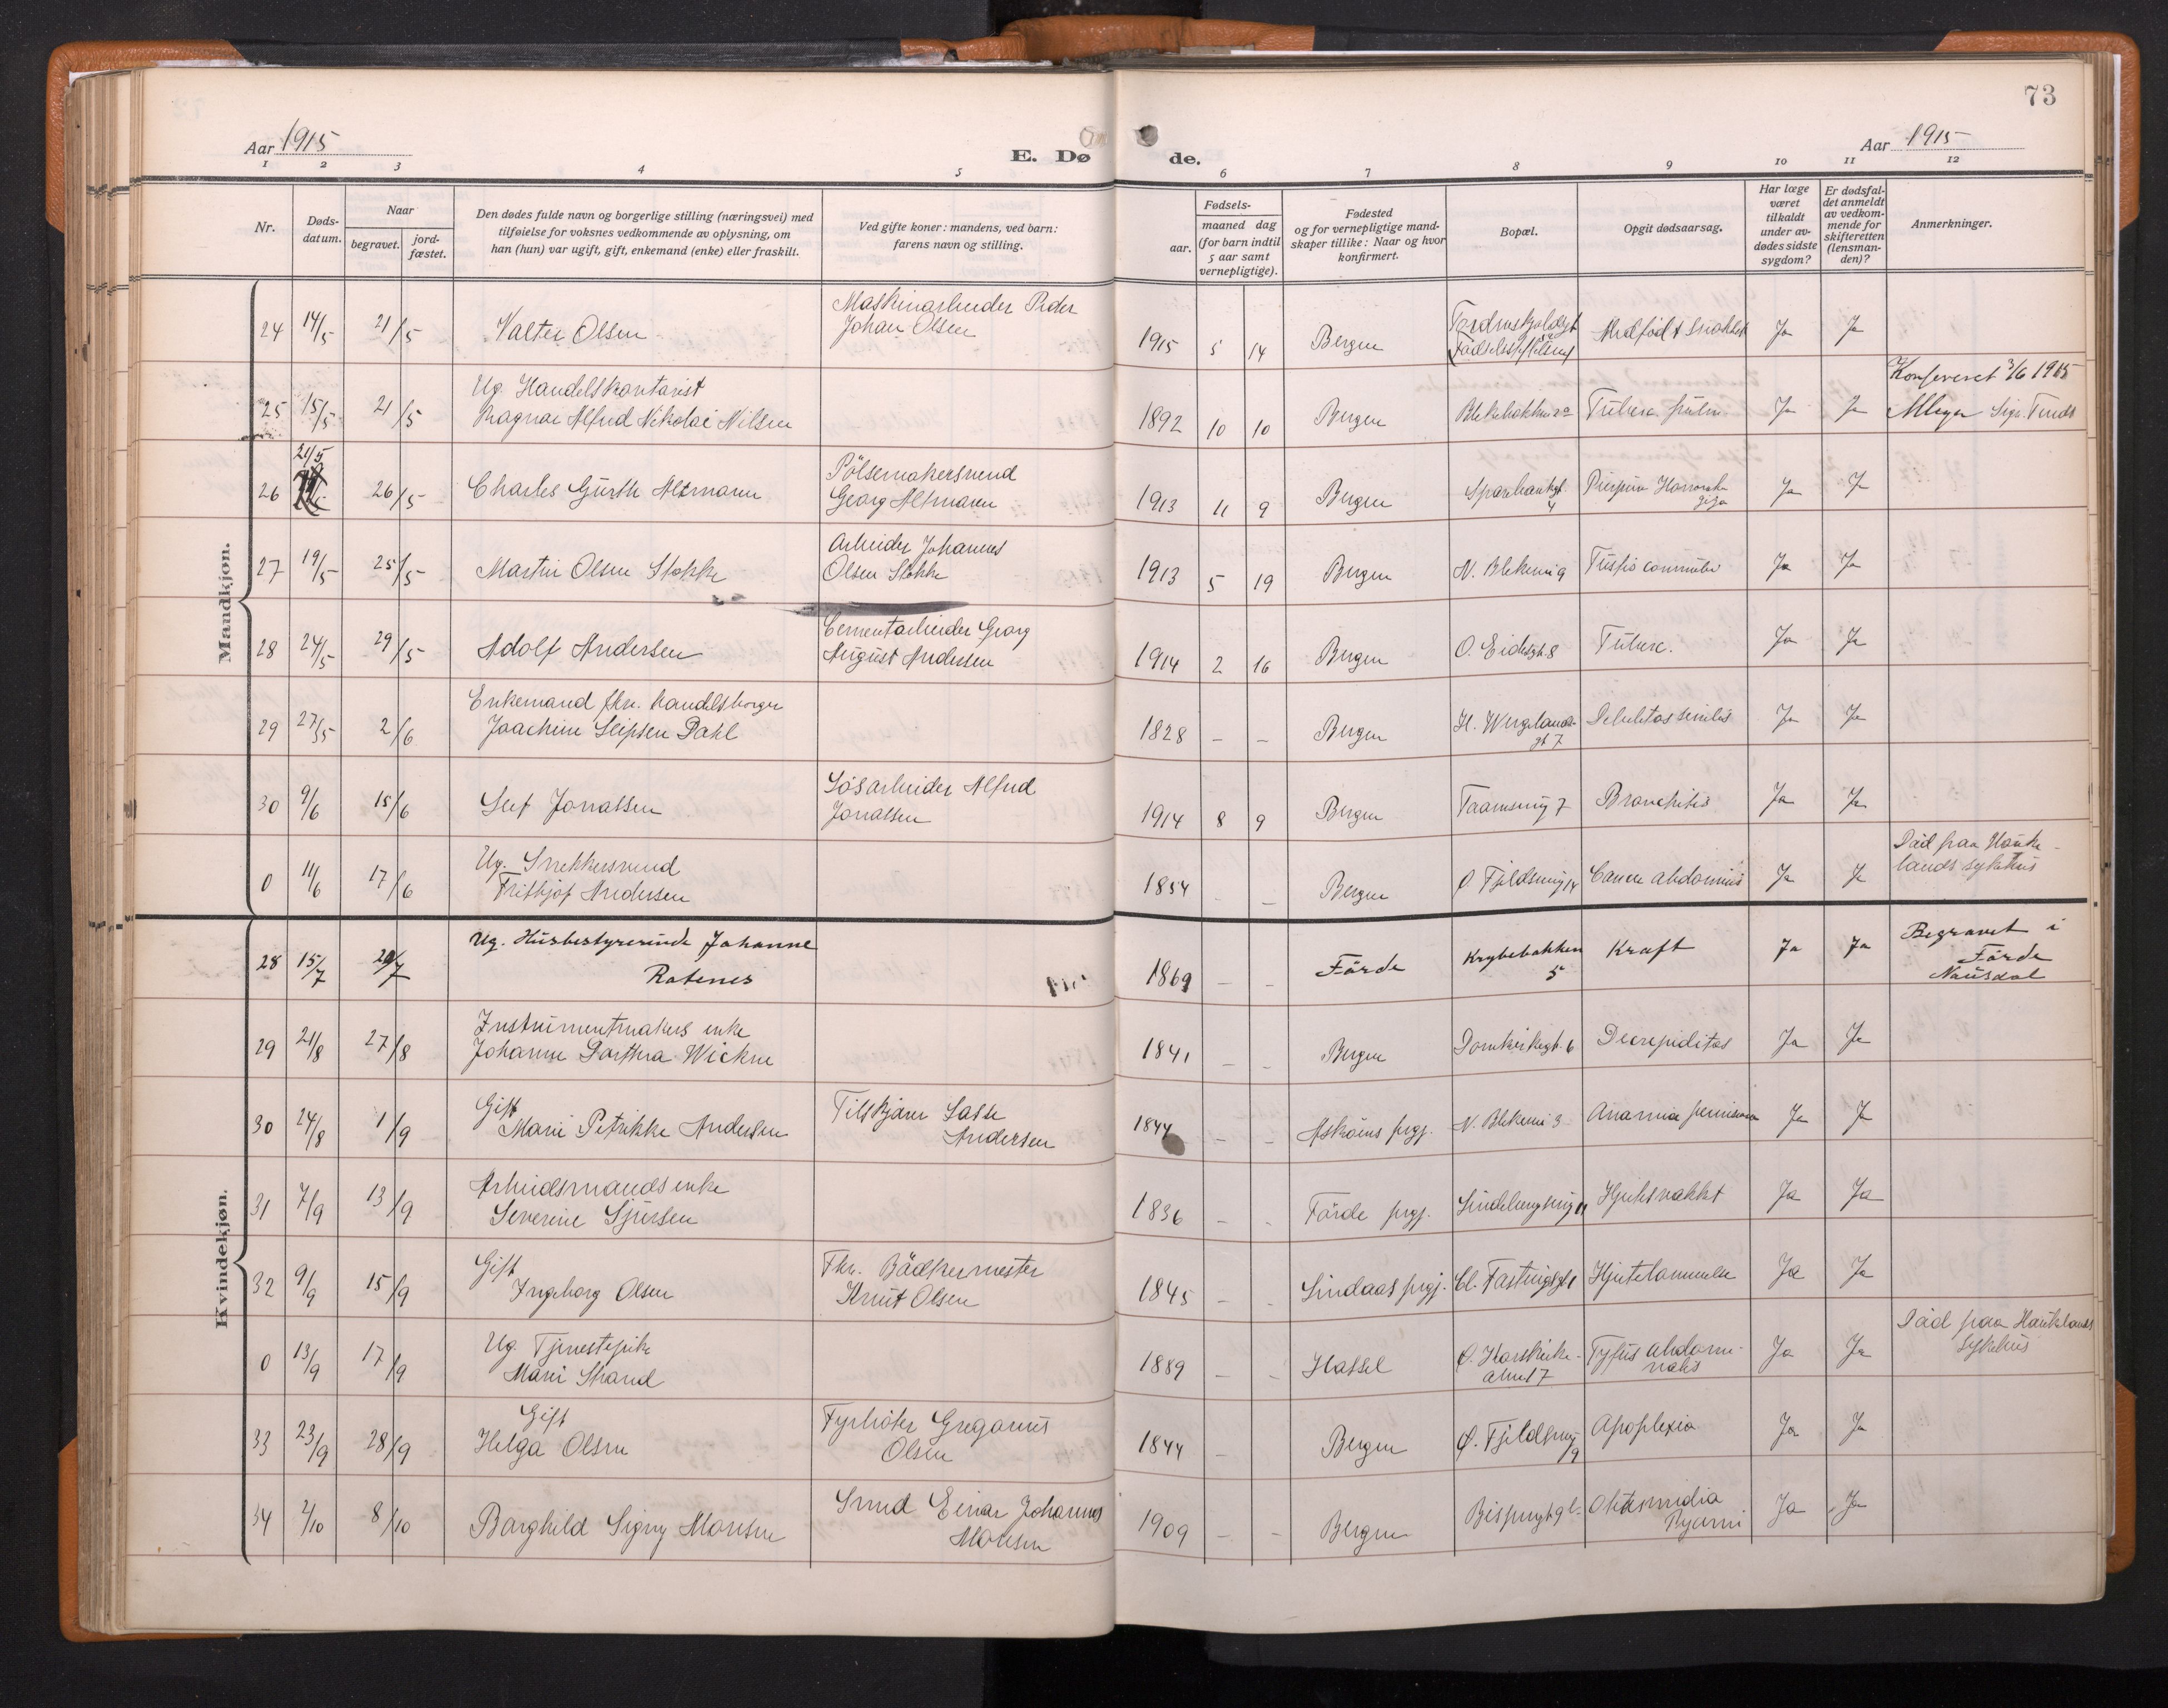 73
Aar 1915
E. Dø
de.
Aar 1915
1 2 3 4 5 6 7 8 9 10 11 12
Nr.
Døds-
datum.
Naar
begravet.
jord-
fæstet.
Den dødes fulde navn og borgerlige stilling (næringsvei) med
tilføielse for voksnes vedkommende av oplysning, om
han (hun) var ugift, gift, enkemand (enke) eller fraskilt.
Ved gifte koner: mandens, ved barn:
farens navn og stilling.
Fødsels-
aar.
maaned dag
(for barn indtil
5 aar samt
vernepligtige).
Fødested
og for vernepligtige mand-
skaper tillike: Naar og hvor
konfirmert.
Bopæl.
Opgit dødsaarsag.
Har læge
været
tilkaldt
under av-
dødes sidste
sygdom?
Er dødsfal-
det anmeldt
av vedkom-
mende for
skifteretten
(lensman-
den)?
Anmerkninger.
Mandkjøn.
24 14/5 21/5 Valter Olsen
Maskinarbeider Peder
Johan Olsen
1915 5 14 Bergen
Ja Ja
25 15/5 21/5 Ug. Handelskontorist
Ragnar Alfred Nikolai Nilsen
1892 10 10 Bergen Tuberc. pulm. Ja Ja
Konfereret 3/6 1915
26 21/5 26/5 Charles Gurth Altmann
Pölsemakersvend
Georg Altmann
1913 11 9 Bergen Sparbankgt.
4
Ja Ja
27 19/5 25/5 Martin Olsen Stokke
Arbeider Johannes
Olsen Stokke
1913 5 19 Bergen N. Blekevei 9 Ja Ja
28 24/5 29/5 Adolf Andersen
Cementarbeider Georg
August Andersen
1914 2 16 Bergen O. Eidesgt. 8 Tuberc. Ja Ja
29 27/5 2/6 Enkemand fhv. handelsborger
Joachim Leipsen Dahl
1828 – – Bergen H. Wergelands-
gt 7
Debilitas senilis Ja Ja
30 9/6 15/6 Leif Jonassen
Løsarbeider Alfred
Jonassen
1914 8 9 Bergen Bronchitis Ja Ja
0 11/6 17/6 Ug. Snekkersvend
Fritkjof Andersen
1854 – – Bergen Ø. Fjeldsmug 14 Cancer abdominis Ja Ja
Död paa Hauke-
lands sykehus
Kvindekjøn.
28 15/7 20/7 Ug. Husbestyrerinde Johanne
Rotenes
1869 – – Förde Krybebakken
5
Kraft Ja Ja
Begravet i
Förde
Nausdal
29 21/8 27/8 Instrumentmakers enke
Johanne Dorthea Wickne
1841 – – Bergen Domkirkegt. 6 Decrepiditas Ja Ja
30 24/8 1/9 Gift
Marie Petrikke Andersen
Tilskjærer Lasse
Andersen
1844 – – Askøens prgj. N. Blekevei 3 Anæmia perniciosa Ja Ja
31 7/9 13/9 Arbeidsmands enke
Severine Sjursen
1836 – – Förde prgj. Ja Ja
32 9/9 15/9 Gift
Ingeborg Olsen
Fhv. Bödkermester
Knut Olsen
1845 – – Lindaas prgj. Cl. Fastingsgt 1 Hjertelammelse Ja Ja
0 13/9 17/9 Ug. Tjenestepike
Marie Strand
1889 – – Hassel Ø. Korskirke-
alm 17
Tyfus abdomi-
nalis
Ja Ja
Död paa Hauklands
sykehus
33 23/9 28/9 Gift
Helga Olsen
Fyrböter Gregorius
Olsen
1844 – Bergen Ø. Fjeldsmug
19
Apoplexia Ja Ja
34 2/10 8/10 Borghild Signy Monsen
Smed Einar Johannes
Monsen
1909 – – Bergen Otitis media
Ja Ja